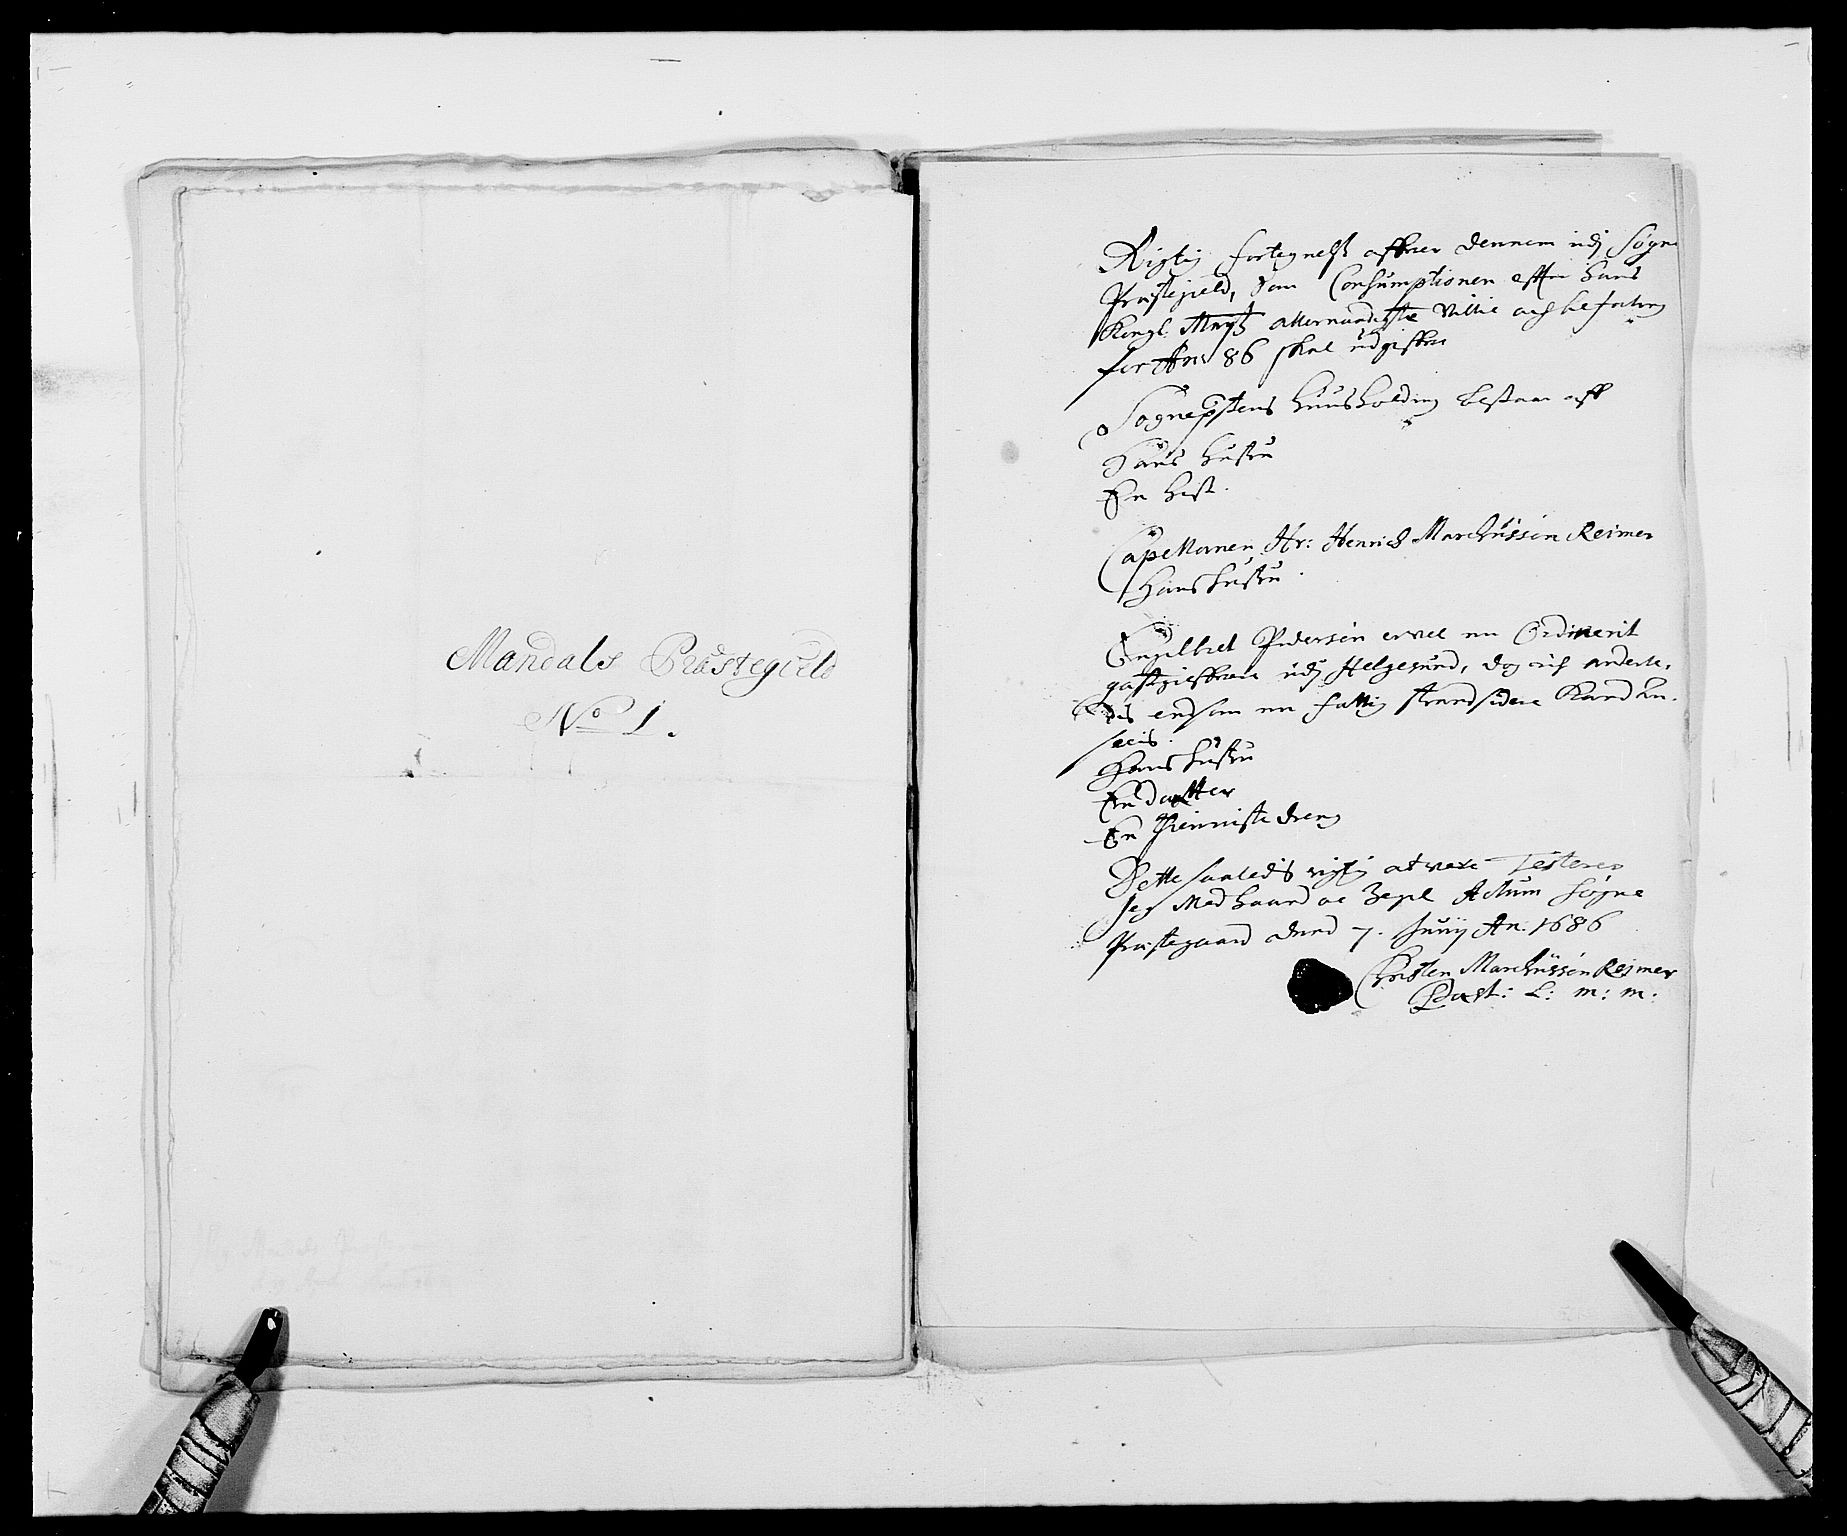 Mandals Præstegield
No 1.
Rigtig fortegnelse offuer dennem udj Søgne
Præstegield, som Consumptionen effter hans
Kongl. Mayts allernaadigste Villie och befaling
for Ano 86 skal udgiffue
Sognepstens huusholding bestaar aff
Hans hustru
En
Capellanen Hr: Henrich Marchussøn Reimer
Hans hustru
Engelbret Pedersøn er vel en Ordinerit
gastgiffuere udj Helgesund, dog
dis end som en fattig strandsidere Kand
seeis.
Hans hustru
En datter
En thienniste dreng
Dette saaledis rigtig at vere Testerer
Jeg Med haand oc Zegl Actum Søgne
Præstegaard dend 7. Junij An. 1686
Christen Marchussøn Reimer
Past: L: m: m: